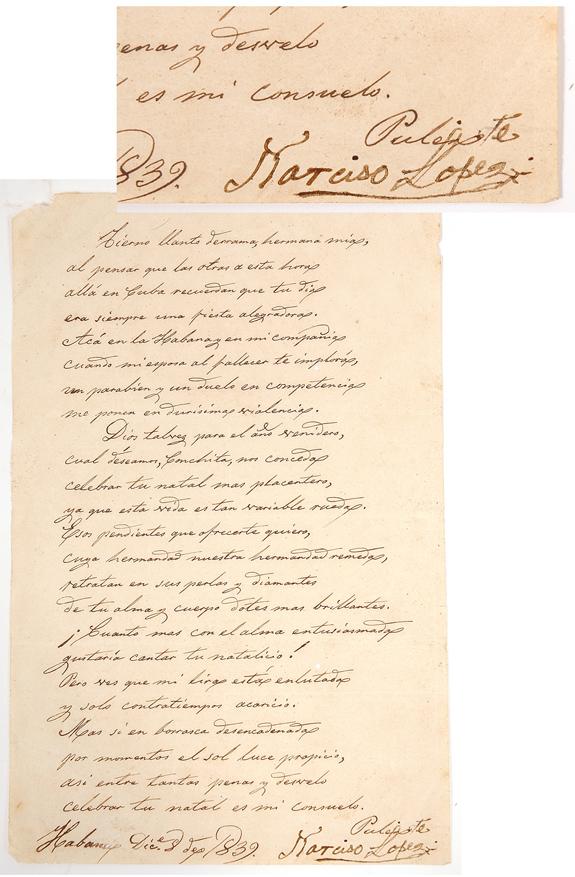 enas y desvelo
es mi consuelo.
1839.
Narciso Lopez.
Tierno llanto derrama, hermana mia,
al pensar que las otras a esta hora
allá en Cuba recuerdan que tu dia
era siempre una fiesta alegradora.
Acá en la Habana, y en mi compañia
cuando mi esposa al fallecer te implora,
un parabien y un duelo en competencia
me ponen en durísima violencia.
Dios talvez para el año venidero,
cual deseamos, Conchita, nos conceda
celebrar tu natal mas placentero,
ya que esta vida es tan variable rueda.
Esos pendientes que ofrecerte quiero,
cuya hermandad nuestra hermandad remeda,
retratan en sus perlas y diamantes
de tu alma y cuerpo dotes mas brillantes.
¡Cuanto mas con el alma entusiasmada
gustaria cantar tu natalicio!
Pero ves que mi lira está enlutada
y solo contratiempos acaricio.
Mas si en borrasca desencadenada
por momentos el sol luce propicio,
asi entre tantas penas y desvelo
celebrar tu natal es mi consuelo.
Habana Dic.e 8 de 1839.
Narciso Lopez.